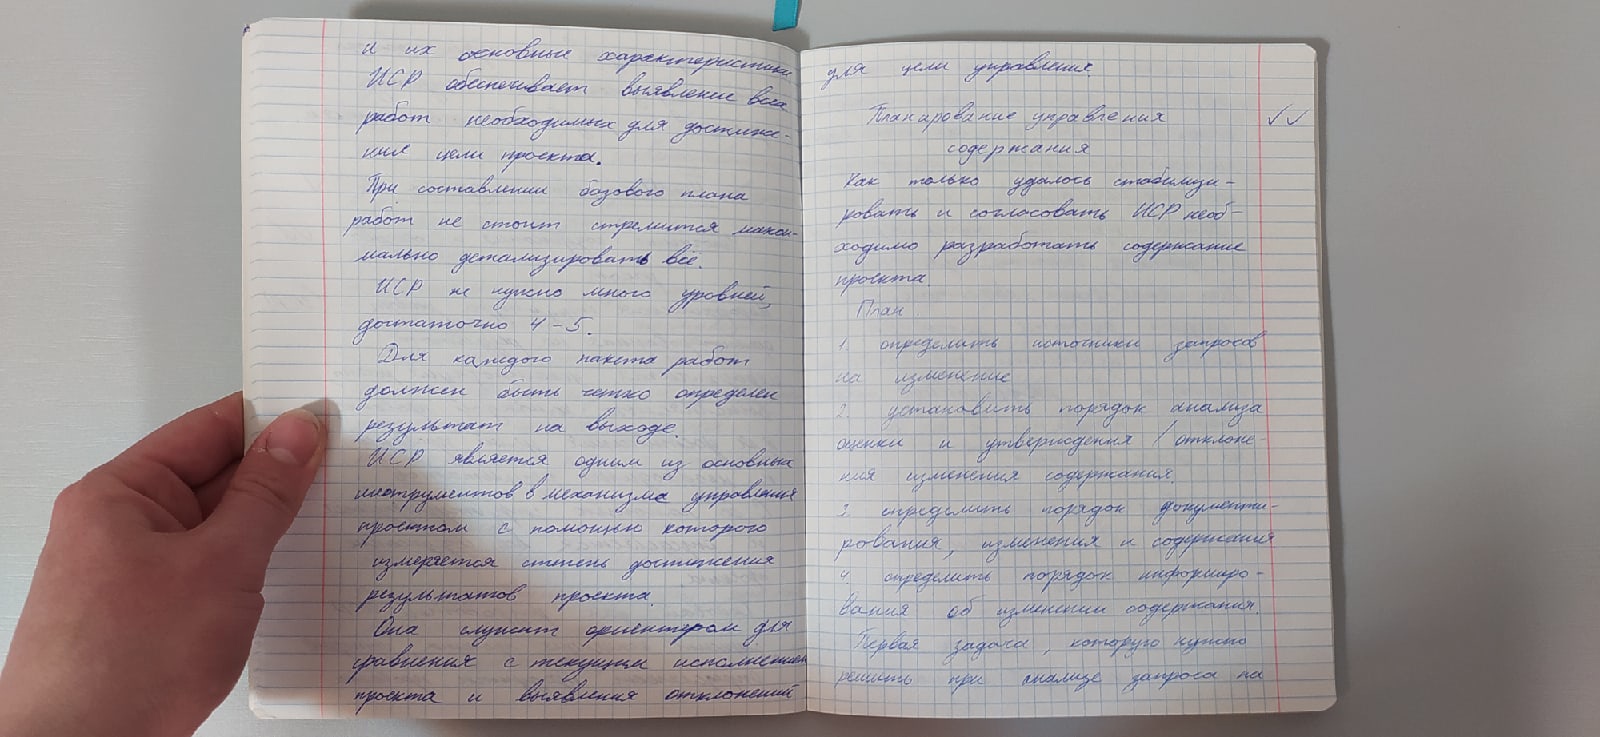 и их основные характеристики
ИСР обеспечивает выявление всех
работ необходимых для достиже-
ния цели проекта.
При составлении базового плана
работ не стоит стремится макси-
мально детализировать всё.
ИСР не нужно много уровней,
достаточно 4-5.
Для каждого пакета работ
должен быть четко определен
результат на выходе.
ИСР является одним из основных
инструментов в механизма управления
проектом с помощью которого
измеряется степень достижения
результатов проекта.
Она служит ориентером для
сравнения с текущим исполнением
проекта и выявления отклонений
для цели управления.
Планирование управления
содержания
Как только удалось стабилизи-
ровать и согласовать ИСР необ-
ходимо разработать содержание
проекта.
План
1. определить источники запросов
на изменение
2. установить порядок анализа
оценки и утверждения / отклоне-
ния изменения содержания.
3. определить порядок документи-
рования, изменения и содержания
4. определить порядок информиро-
вания об изменении содержания.
Первая задача, которую нужно
решить при анализе запроса на